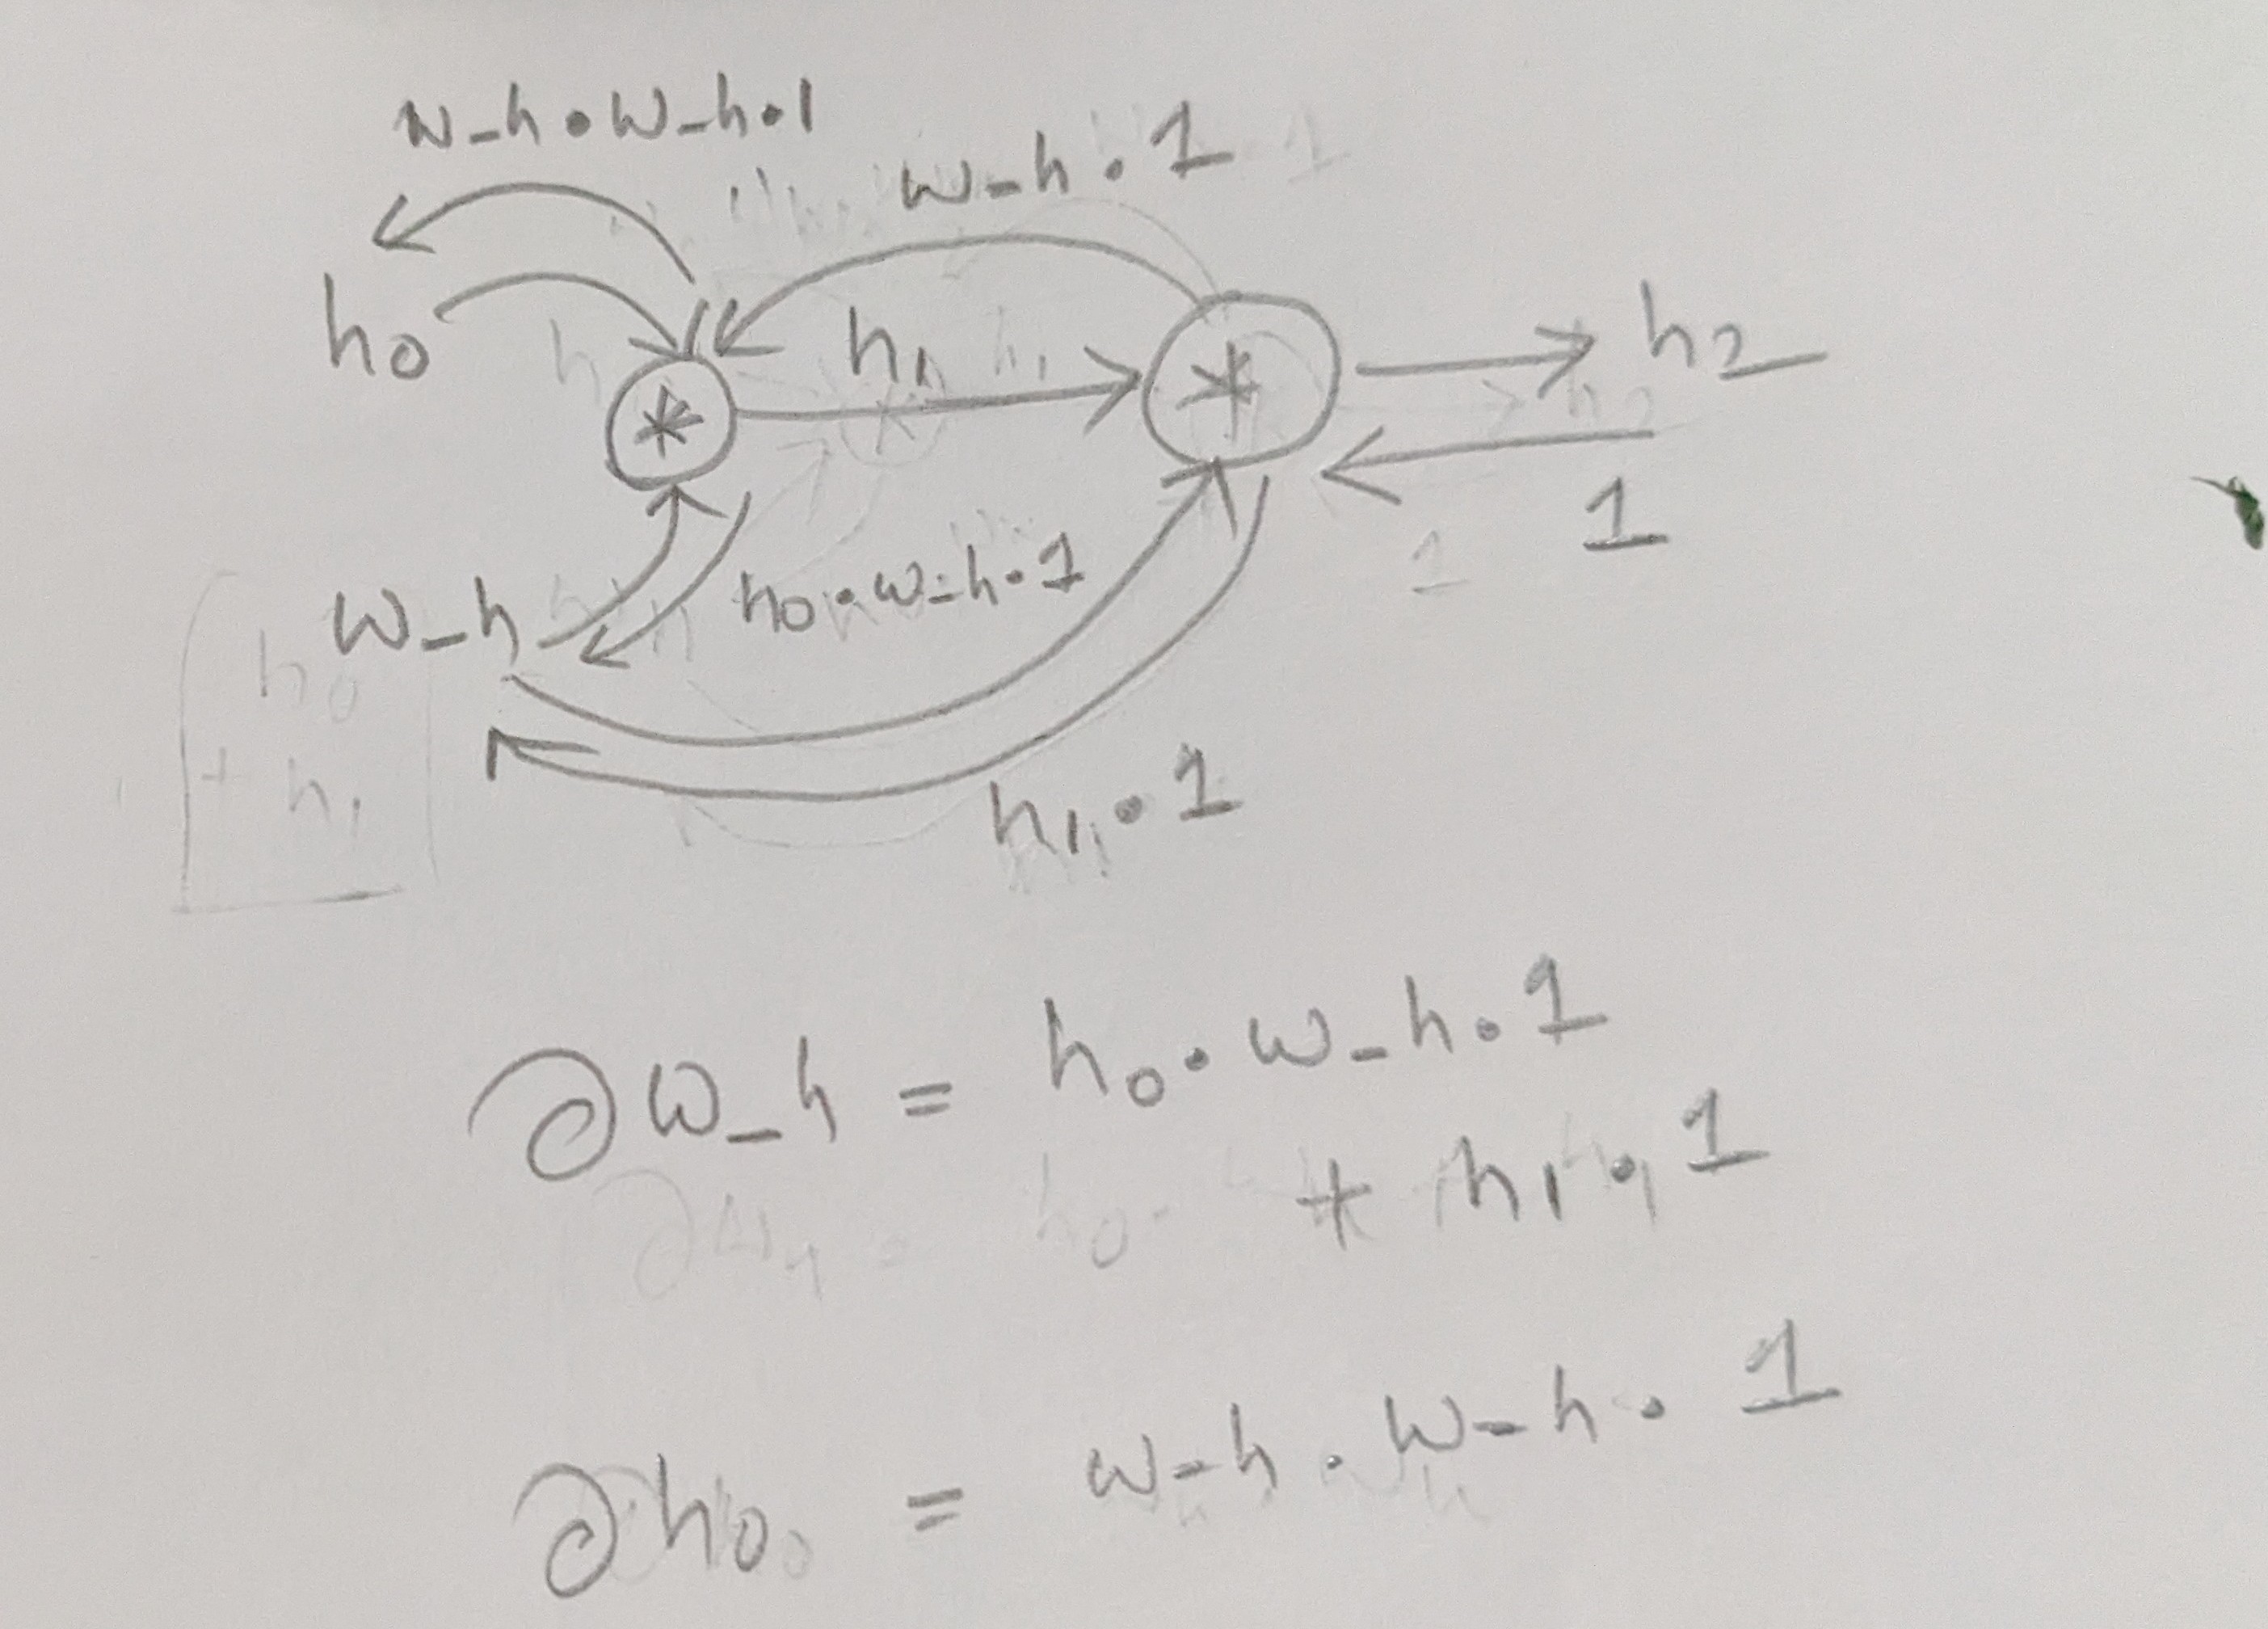 w-h•w-h•1
w-h•1
h0
h1
h2
*
*
1
w-h
h0•w-h•1
h1•1
∂w_h = h0•w-h•1
+ h1•1
∂h0 = w-h•w-h•1